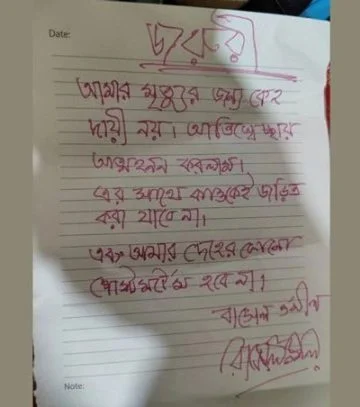 Date:
জরুরী
আমার মৃত্যুর জন্য কেহ
দায়ী নয়। আত্তিস্বেচ্ছায়
আত্মহনন করলাম।
এর সাথে কাওকেই জড়িত
করা যাবে না।
এবং আমার দেহের কোনো
পোস্টমর্টেম হবে না।
Note: